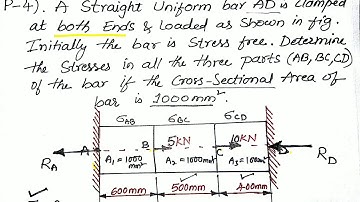 P-4). A Straight Uniform bar AD is clamped
at both Ends & loaded as Shown in fig.
Initially the bar is Stress free. Determine
the Stresses in all the three parts (AB, BC, CD)
of the bar if the Cross-Sectional Area of
bar is 1000mm².
σAB σBC σCD
A B 5KN C 10KN D
RA A₁=1000 mm² A₂=1000mm² A₃=1000m² RD
600mm 500mm 400mm